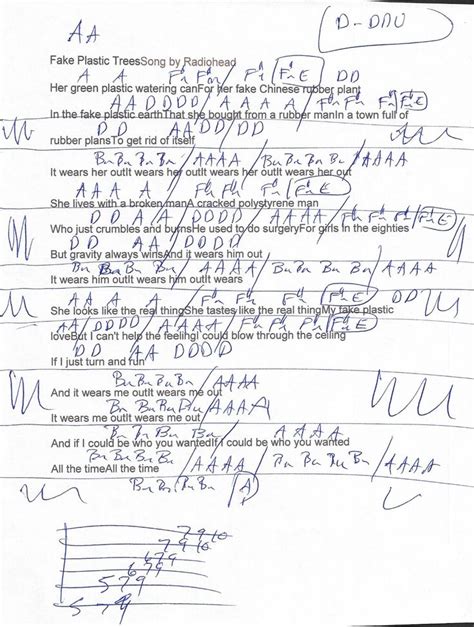 A A
D-DDU
Fake Plastic TreesSong by Radiohead
A A A F#m F#m / F#m F#m E D D
Her green plastic watering canFor her fake Chinese rubber plant
A A D D D D / A A A A / F#m F#m F#m E
In the fake plastic earthThat she bought from a rubber manIn a town full of
D D A A D D / D D
rubber plansTo get rid of itself
Bm Bm Bm Bm / A A A A / Bm Bm Bm Bm / A A A A
It wears her outIt wears her outIt wears her outIt wears her out
A A A A F#m F#m F#m F#m E
She lives with a broken manA cracked polystyrene man
D D A A / D D D D / A A A A / F#m F#m F#m E
Who just crumbles and burnsHe used to do surgeryFor girls in the eighties
D D A A / D D D D
But gravity always winsAnd it wears him out
Bm Bm Bm Bm / A A A A / Bm Bm Bm Bm / A A A A
It wears him outIt wears him outIt wears
A A A A F#m F#m / F#m F#m E D D
She looks like the real thingShe tastes like the real thingMy fake plastic
A A / D D D D / A A A A / F#m F#m F#m E
loveBut I can't help the feelingI could blow through the ceiling
D D A A D D D D
If I just turn and run
Bm Bm Bm Bm / A A A A
And it wears me outIt wears me out
Bm Bm Bm Bm / A A A A
It wears me outIt wears me out
Bm Bm Bm Bm / A A A A
And if I could be who you wantedIf I could be who you wanted
Bm Bm Bm Bm / A A A A / Bm Bm Bm Bm / A A A A
All the timeAll the time
Bm Bm Bm Bm / A
7 9 10
7 9 10
6 7 9
6 7 9
5 7 9
5 7 9